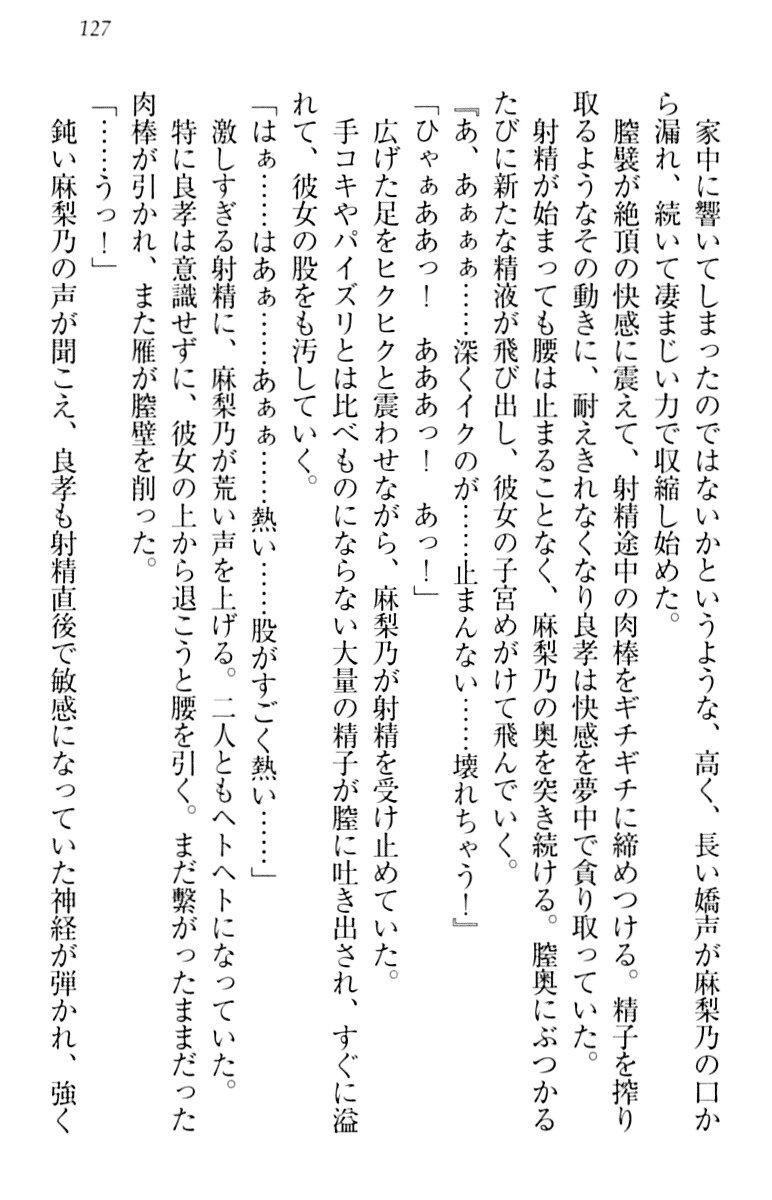 127
家中に響いてしまったのではないかというような、高く、長い嬌声が麻梨乃の口か
ら漏れ、続いて凄まじい力で収縮し始めた。
膣襞が絶頂の快感に震えて、射精途中の肉棒をギチギチに締めつける。精子を搾り
取るようなその動きに、耐えきれなくなり良孝は快感を夢中で貪り取っていた。
射精が始まっても腰は止まることなく、麻梨乃の奥を突き続ける。膣奥にぶつかる
たびに新たな精液が飛び出し、彼女の子宮めがけて飛んでいく。
『あ、あぁぁぁ……深くイクのが……止まんない……壊れちゃう!』
「ひゃぁああっ! あああっ! あっ!」
広げた足をヒクヒクと震わせながら、麻梨乃が射精を受け止めていた。
手コキやパイズリとは比べものにならない大量の精子が膣に吐き出され、すぐに溢
れて、彼女の股をも汚していく。
「はぁ……はあぁ……あぁぁ……熱い……股がすごく熱い……」
激しすぎる射精に、麻梨乃が荒い声を上げる。二人ともヘトヘトになっていた。
特に良孝は意識せずに、彼女の上から退こうと腰を引く。まだ繋がったままだった
肉棒が引かれ、また雁が膣壁を削った。
「……うっ!」
鈍い麻梨乃の声が聞こえ、良孝も射精直後で敏感になっていた神経が弾かれ、強く